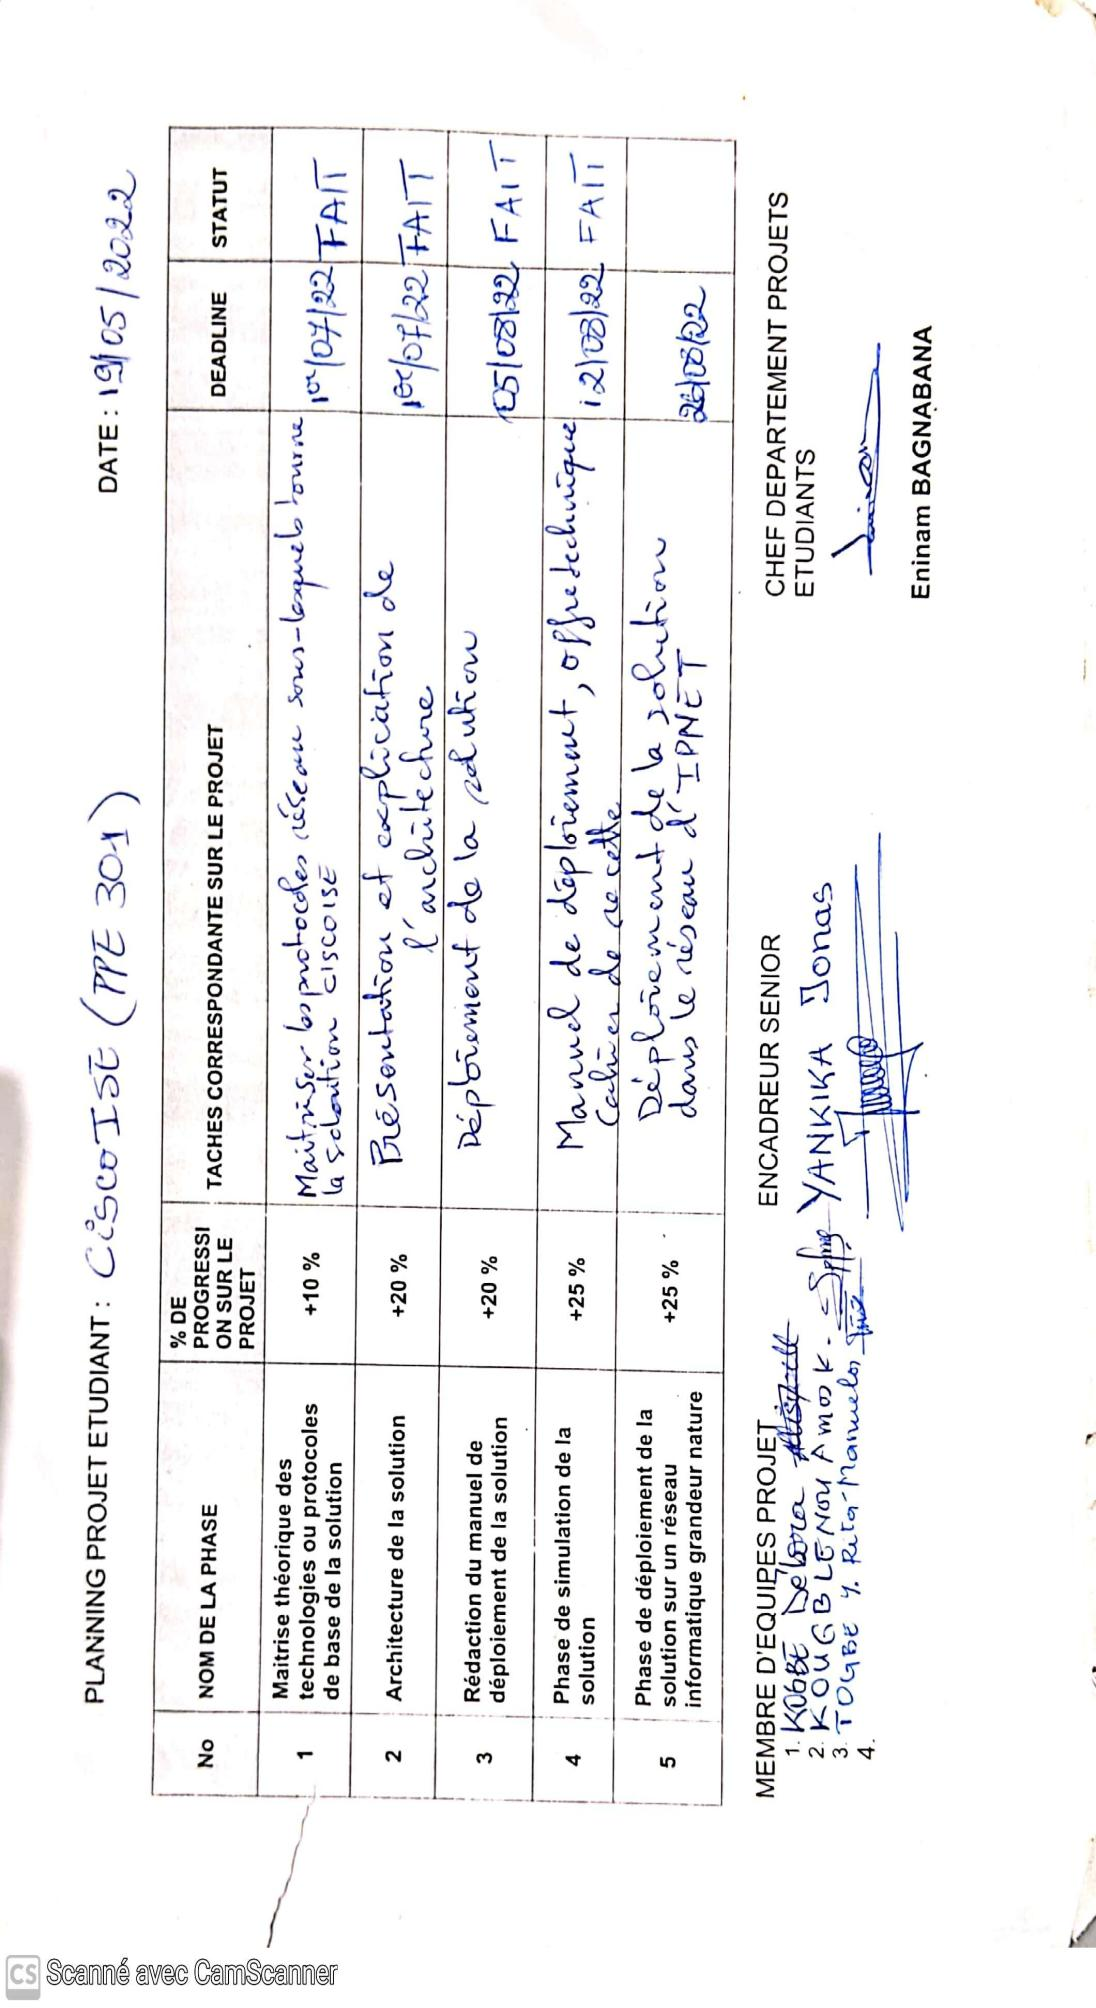 PLANNING PROJET ETUDIANT : CISCO ISE (PPE 301)
DATE : 19/05/2022
No
NOM DE LA PHASE
% DE
PROGRESSI
ON SUR LE
PROJET
TACHES CORRESPONDANTE SUR LE PROJET
DEADLINE
STATUT
1
Maitrise théorique des
technologies ou protocoles
de base de la solution
+10 %
Maitriser les protocoles réseau sous-lesquels tourne
la solution CISCO ISE
1er/07/22
FAIT
2
Architecture de la solution
+20 %
Présentation et explication de
l'architecture
1er/07/22
FAIT
3
Rédaction du manuel de
déploiement de la solution
+20 %
Déploiement de la solution
05/08/22
FAIT
4
Phase de simulation de la
solution
+25 %
Manuel de déploiement, offre technique
Cahier de recette
12/08/22
FAIT
5
Phase de déploiement de la
solution sur un réseau
informatique grandeur nature
+25 %
Déploiement de la solution
dans le réseau d'IPNET
26/08/22
MEMBRE D'EQUIPES PROJET
1. KOGBE Débora
2. KOUGBLENOU Amos K.
3. TOGBE Y. Rita-Manuela
4.
ENCADREUR SENIOR
YANKIKA Jonas
CHEF DEPARTEMENT PROJETS
ETUDIANTS
Eninam BAGNABANA
CS Scanné avec CamScanner